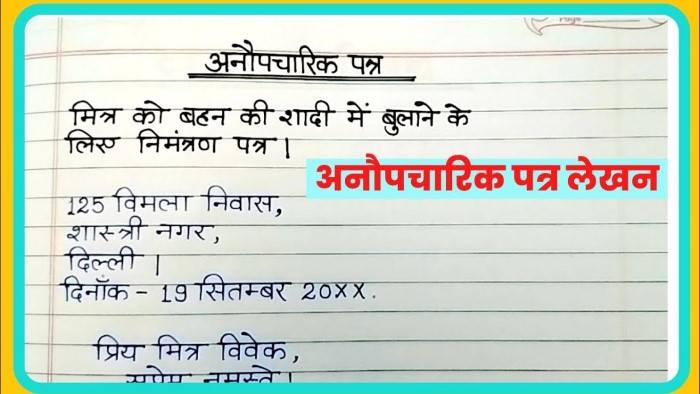 अनौपचारिक पत्र
मित्र को बहन की शादी में बुलाने के
लिए निमंत्रण पत्र।
अनौपचारिक पत्र लेखन
125 विमला निवास,
शास्त्री नगर,
दिल्ली।
दिनाँक - 19 सितम्बर 20xx.
प्रिय मित्र विवेक,
सप्रेम नमस्ते।